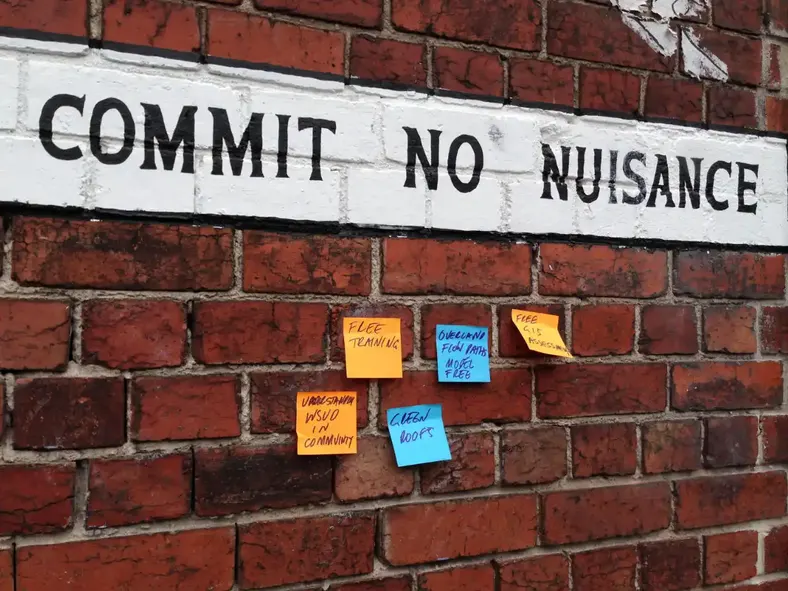 COMMIT NO NUISANCE
FREE
TRAINING
OVERLAND
FLOW PATHS
MODEL
FREE
FREE
GIS
ASSESSMENT
UNDERSTAND
WSUD
IN
COMMUNITY
GREEN
ROOFS